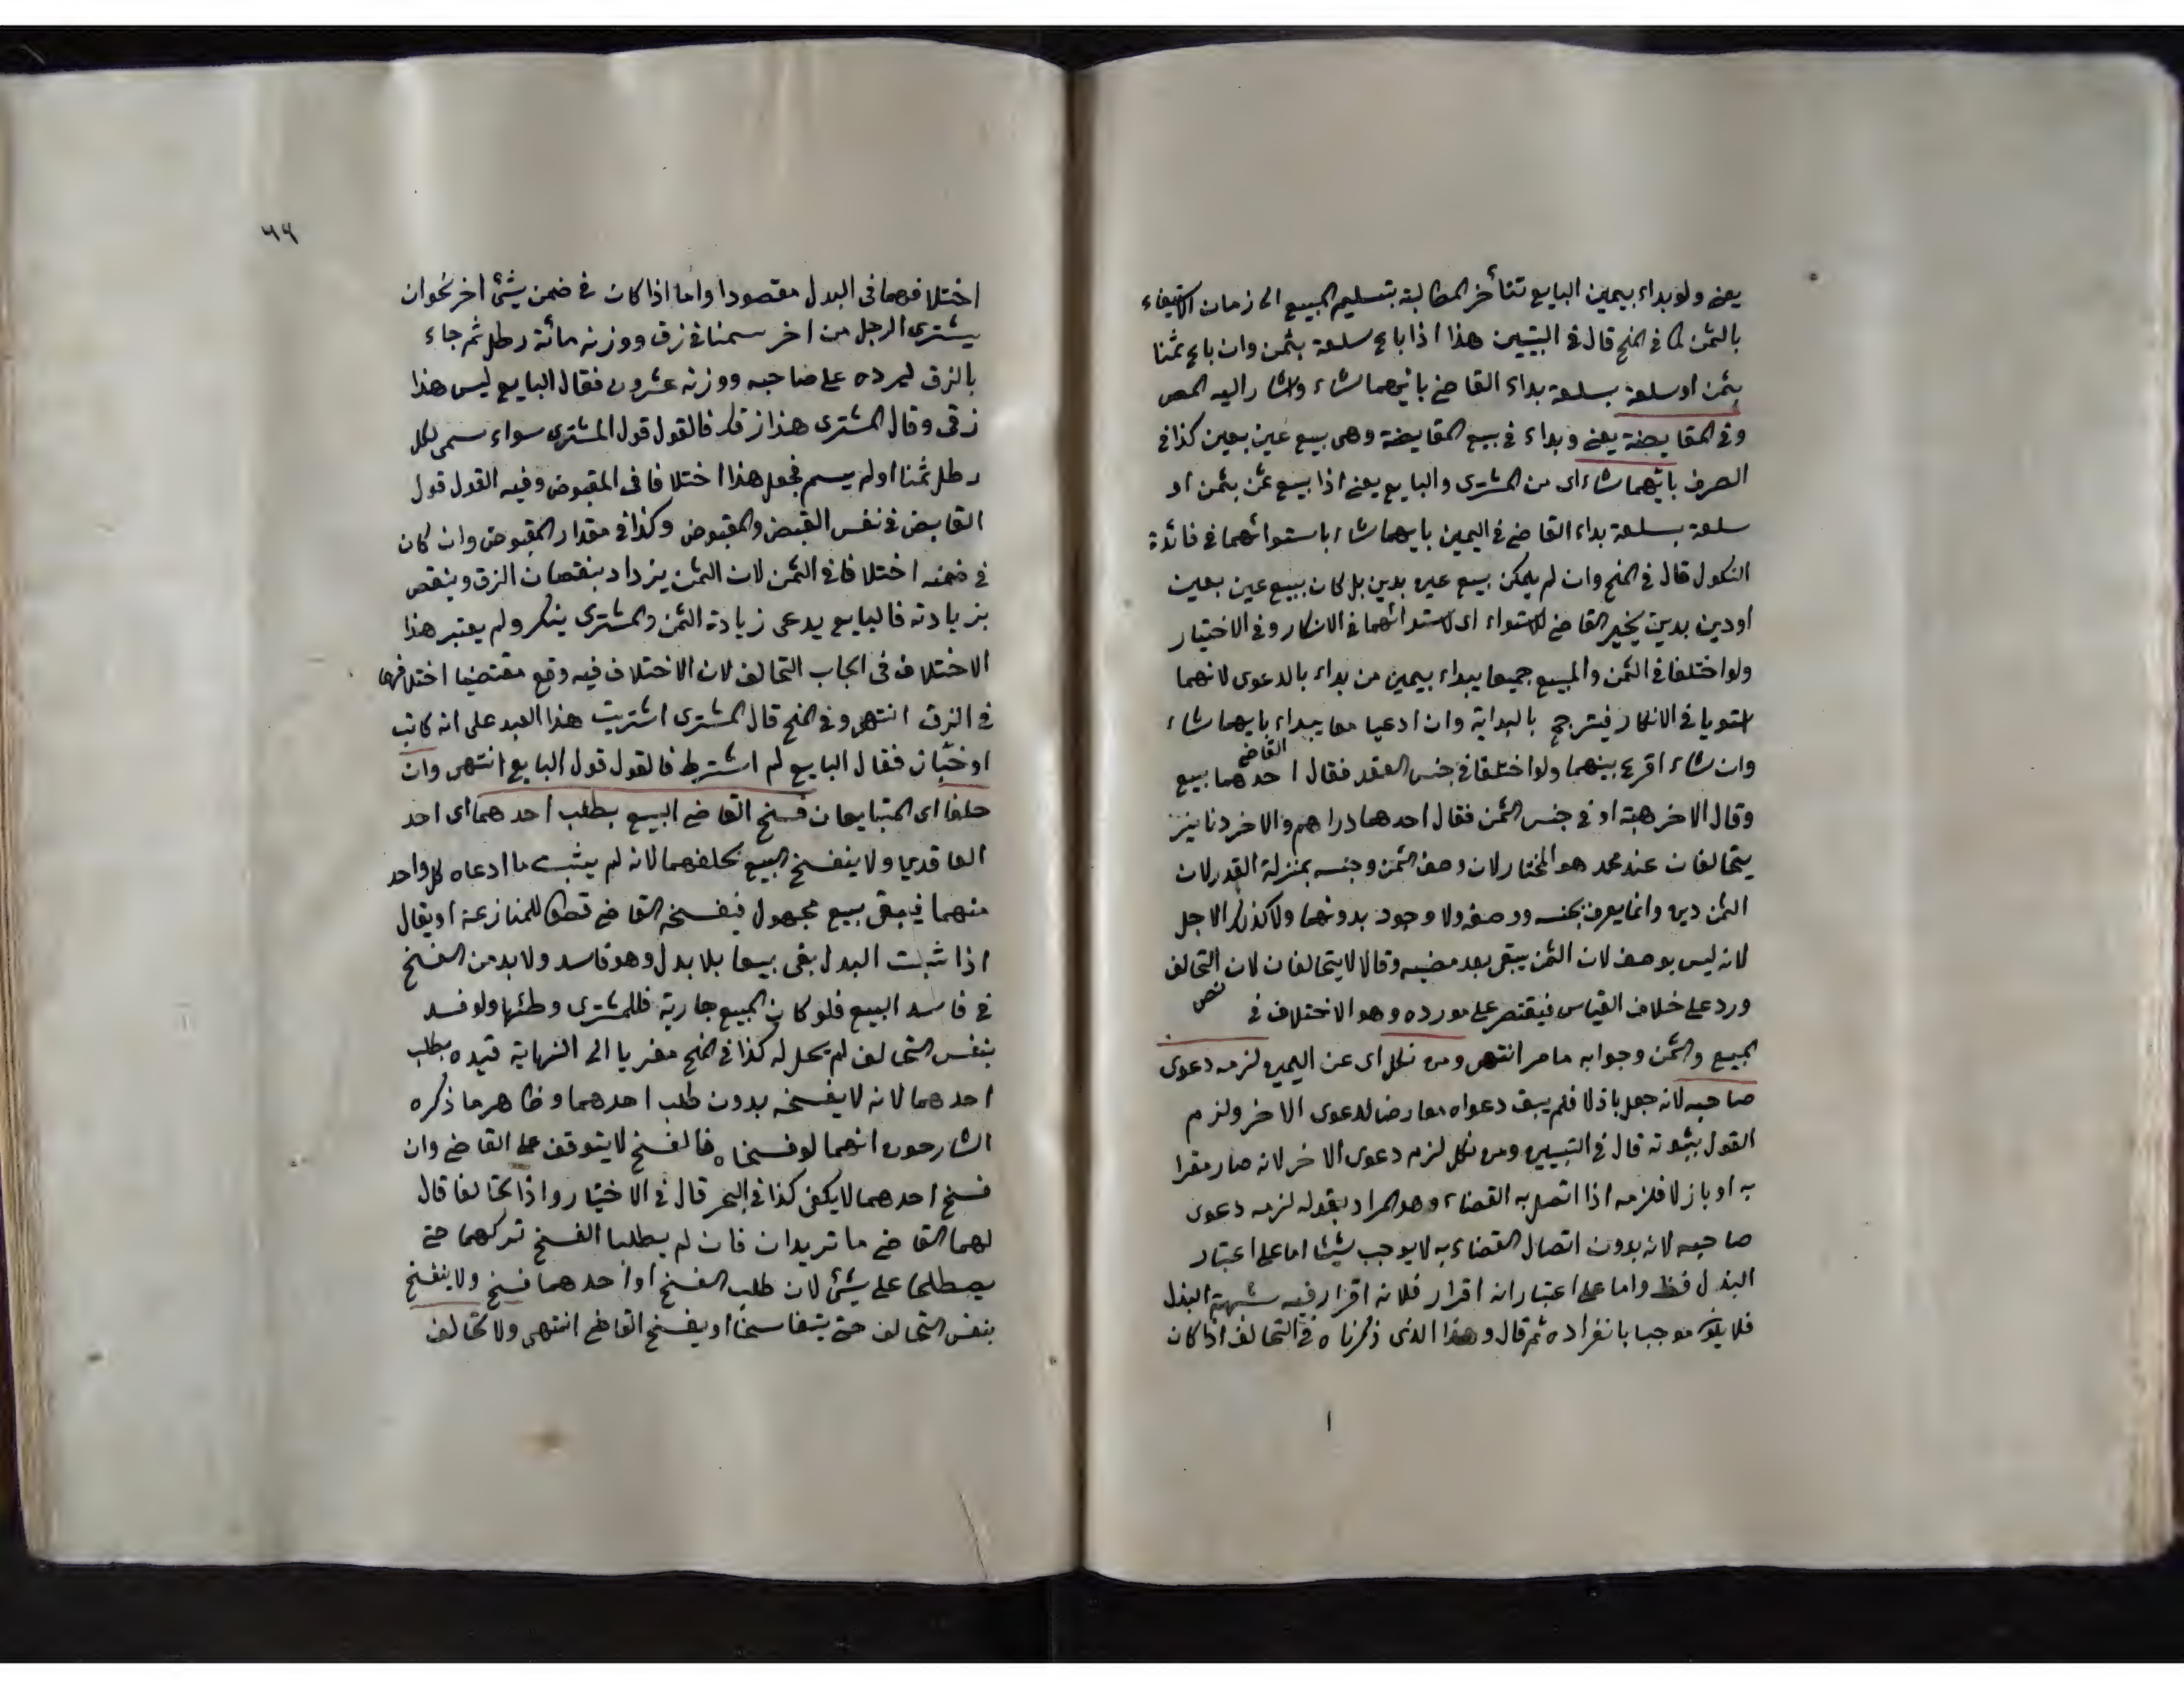 يعنى ولو بداء بيمين البايع تتأخر المطالبة بتسليم المبيع الى زمان استيفاء
بالثمن كما فى المنح قال فى التبيين هذا اذا باع سلعة بثمن وان باع ثمنا
بثمن او سلعة بسلعة بداء القاضى بايهما شاء واشار اليه المص
وفى المقايضة يعنى وبداء فى بيع المقايضة وهى بيع عين بعين كذا فى
الصرف بايهما شاء اى من المشترى والبايع يعنى اذا بيع ثمن بثمن او
سلعة بسلعة بداء القاضى فى اليمين بايهما شاء باستوائهما فى فائدة
النكول قال فى المنح وان لم يكن بيع عين بدين بل كان ببيع عين بعين
او دين بدين يخير القاضى للاستواء اى لاستوائهما فى الانكار وفى الاختيار
ولو اختلفا فى الثمن والمبيع جميعا يبداء بيمين من بداء بالدعوى لانهما
استويا فى الانكار فيترجح بالبداية وان ادعيا معا يبداء بايهما شاء
القاضى
وان شاء اقرع بينهما ولو اختلفا فى جنس العقد فقال احدهما بيع
وقال الاخر هبة او فى جنس الثمن فقال احدهما دراهم والاخر دنانير
يتحالفان عند محمد هو المختار لان وصف الثمن وجنسه بمنزلة القدر لان
الثمن دين وانما يعرف بجنسه ووصفه ولا وجود بدونهما ولا كذلك الاجل
لانه ليس بوصف لان الثمن يبقى بعد مضيه وقالا لا يتحالفان لان التحالف
نص
ورد على خلاف القياس فيقتصر على مورده وهو الاختلاف فى
المبيع والثمن وجوابه ما مر انتهى ومن نكل اى عن اليمين لزمه دعوى
صاحبه لانه جعل باذلا فلم يبق دعواه معارضا لدعوى الاخر ولزم
القول بثبوته قال فى التبيين ومن نكل لزمه دعوى الاخر لانه صار مقرا
به او باذلا فلزمه اذا اتصل به القضاء وهو المراد بقوله لزمه دعوى
صاحبه لانه بدون اتصال القضاء به لا يوجب شيئا اما على اعتبار
البذل فظ واما على اعتبار انه اقرار فلانه اقرار فيه شبهة البذل
فلا يكون موجبا بانفراده ثم قال وهذا الذى ذكرناه فى التحالف اذا كان
ا
٦٩
اختلافهما فى البدل مقصودا واما اذا كان فى ضمن شئ اخر نحو ان
يشترى الرجل من اخر سمنا فى زق ووزنه مائة رطل ثم جاء
بالزق ليرده على صاحبه ووزنه عشرون فقال البايع ليس هذا
زقى وقال المشترى هذا زقك فالقول قول المشترى سواء سمى لكل
رطل ثمنا اولم يسم فجعل هذا اختلافا فى المقبوض وفيه القول قول
القابض فى نفس القبض والمقبوض وكذا فى مقدار المقبوض وان كان
فى ضمنه اختلافا فى الثمن لان الثمن يزداد بنقصان الزق وينقص
بزيادته فالبايع يدعى زيادة الثمن والمشترى ينكر ولم يعتبر هذا
الاختلاف فى ايجاب التحالف لان الاختلاف فيه وقع مقتضيا اختلافهما
فى الزق انتهى وفى المنح قال المشترى اشتريت هذا العبد على انه كاتب
او خباز فقال البايع لم اشترط فالقول قول البايع انتهى وان
حلفا اى المتبايعان فسخ القاضى البيع بطلب احدهما اى احد
العاقدين ولا ينفسخ البيع بحلفهما لانه لم يثبت ما ادعاه كل واحد
منهما فيبقى بيع مجهول فيفسخه القاضى قطعا للمنازعة او يقال
اذا ثبت البدل بقى بيعا بلا بدل وهو فاسد ولا بد من الفسخ
فى فاسد البيع فلو كان المبيع جارية فللمشترى وطئها ولو فسد
بنفس التحالف لم يحل له كذا فى المنح معزيا الى النهاية قيده بطلب
احدهما لانه لا يفسخه بدون طلب احدهما وظاهر ما ذكره
الشارحون انهما لو فسخاه فالفسخ لا يتوقف على القاضى وان
فسخ احدهما لا يكفى كذا فى البحر قال فى الاختيار واذا تحالفا قال
لهما القاضى ما تريدان فان لم يطلبا الفسخ تركهما حتى
يصطلحا على شئ لان طلب الفسخ او احدهما فسخ ولا ينفسخ
بنفس التحالف حتى يتفاسخا او يفسخ القاضى انتهى ولا تحالف